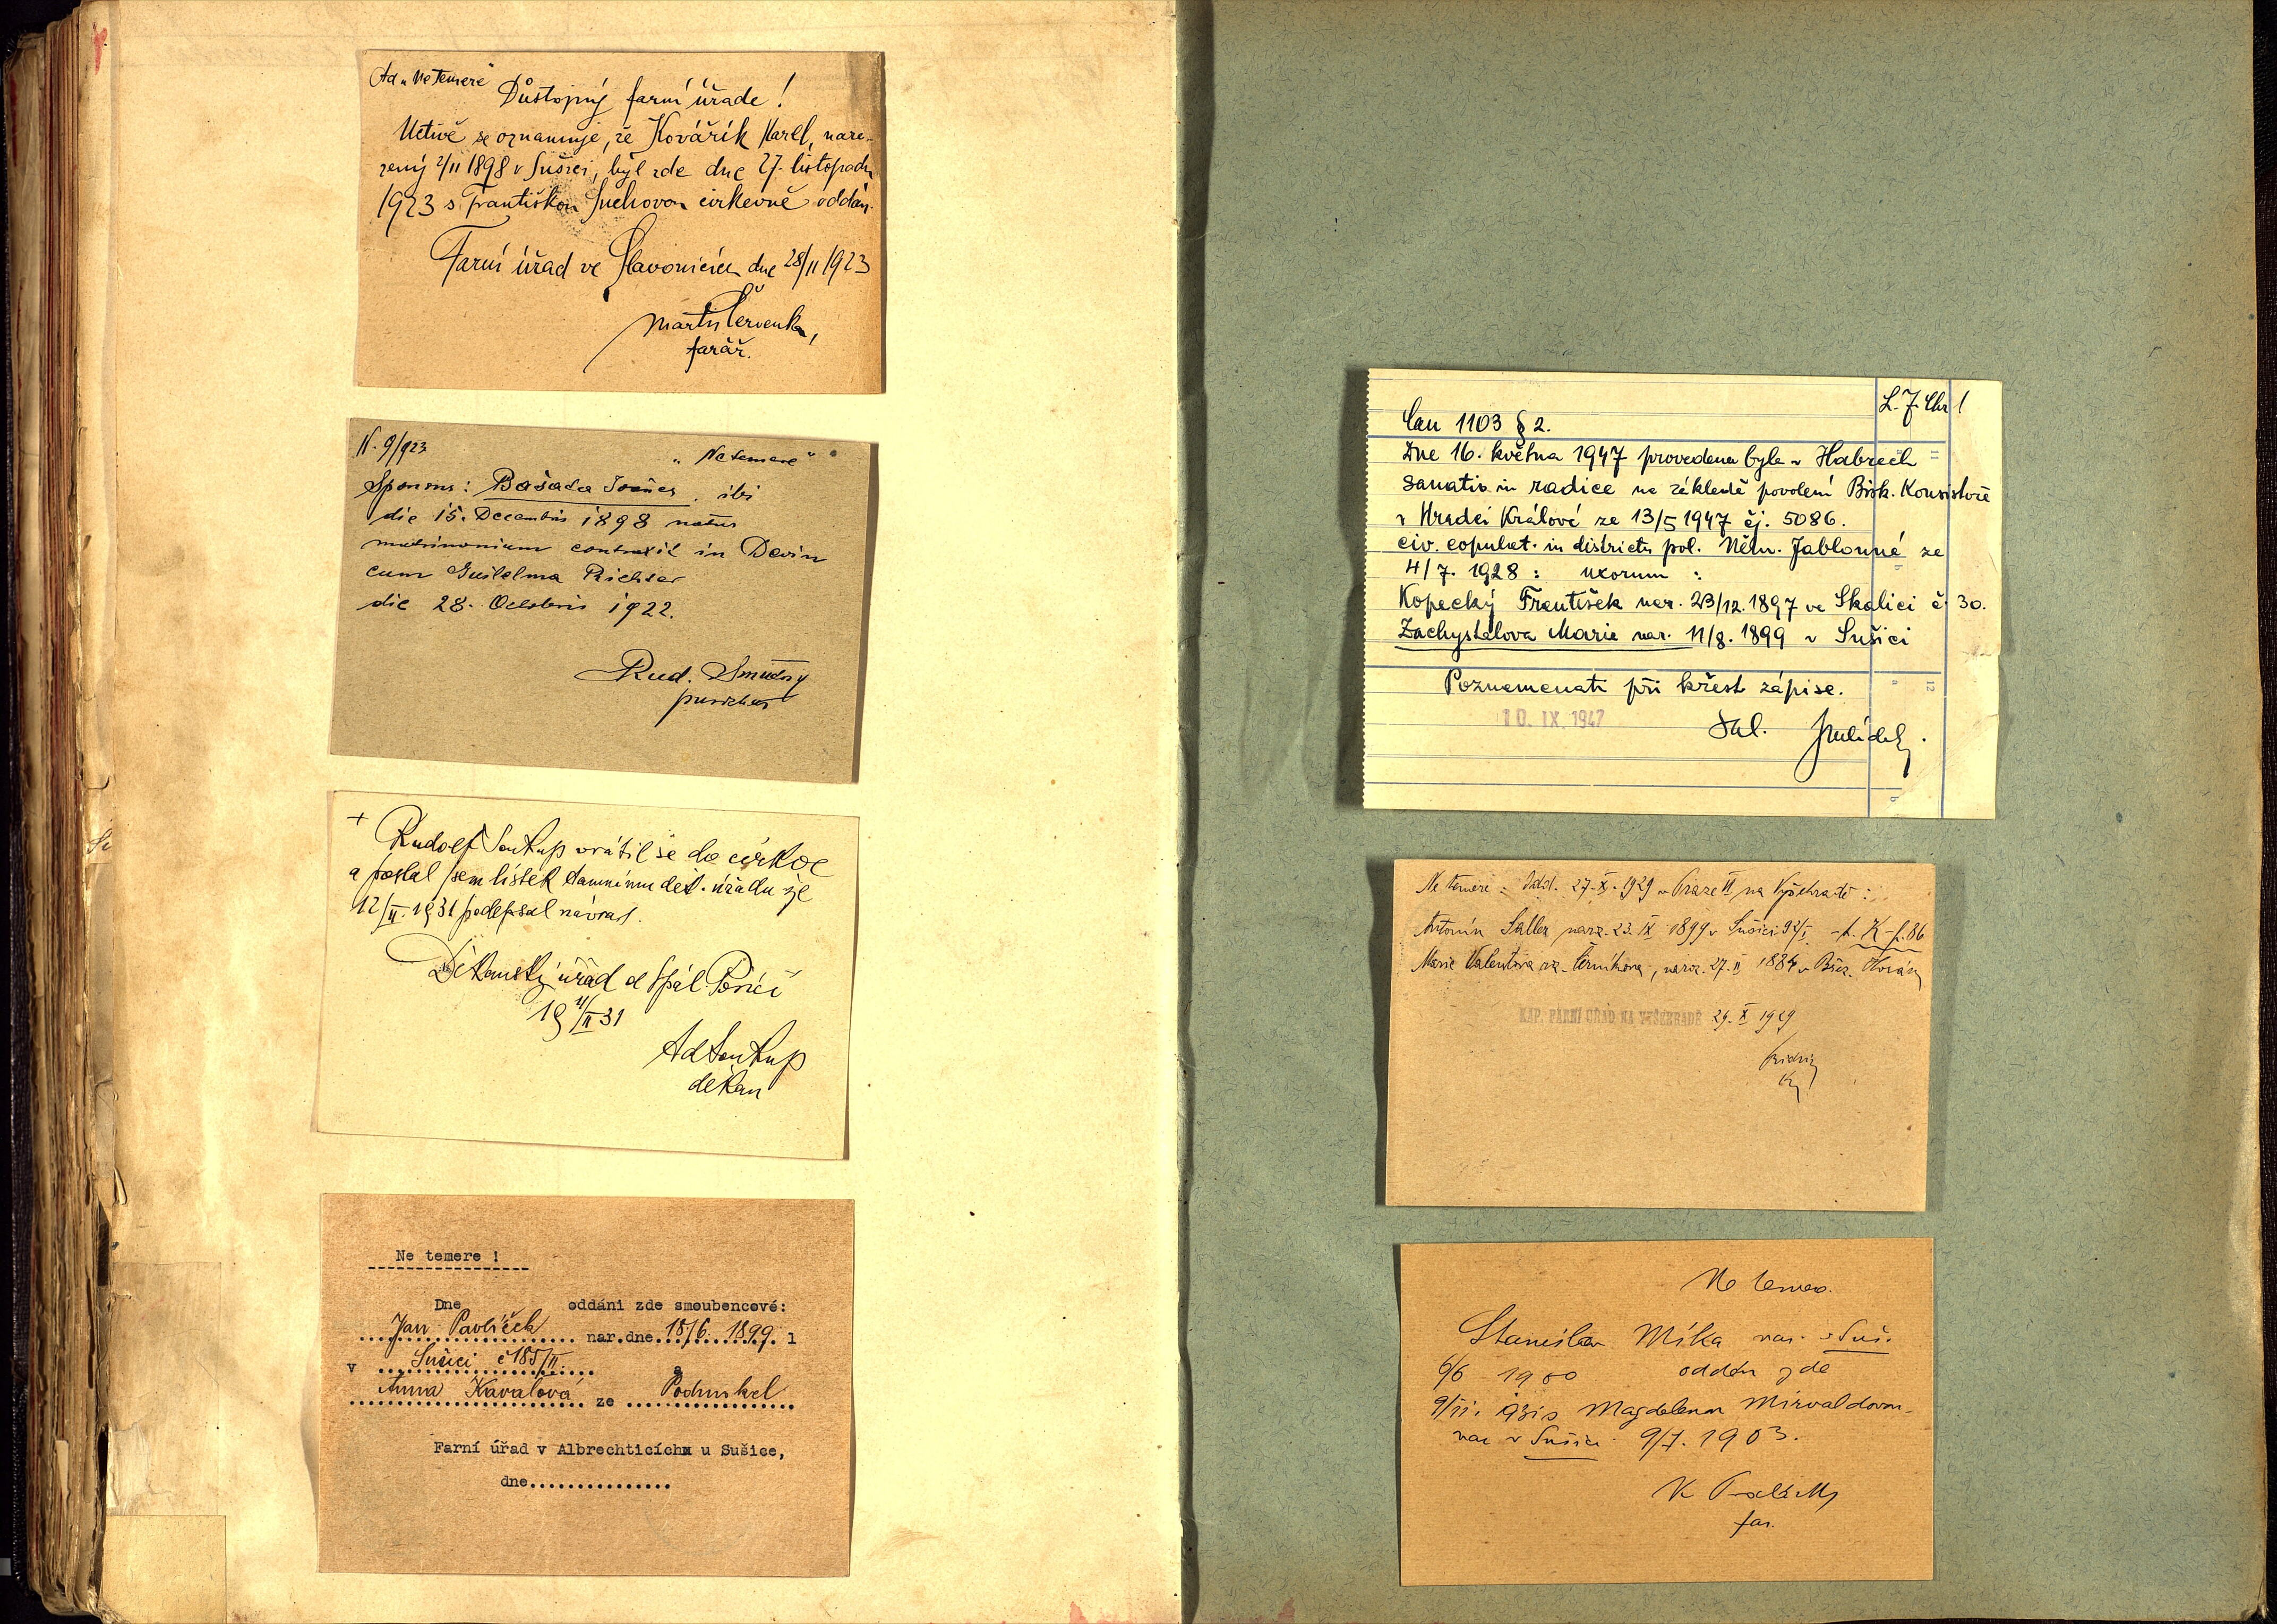 Ad „Ne temere"
Důstojný farní úřade!
Uctivě se oznamuje, že Kovářík Karel, naro-
zený 2/II 1898 v Sušici, byl zde dne 27. listopadu
1923 s Františkou Suchovou církevně oddán.
Farní úřad ve Slavonicích dne 28/11 1923
Martin Červenka,
farář.
N. 9/923
„Ne temere"
Sponsus: Bašada Joañes, ibi
die 15. Decembris 1898 natus
matrimonium contraxit in Devin
cum Guilelma Richter
die 28. Octobris 1922.
Rud. Smutný
parochus
+ Rudolf Soukup vrátil se do církve
a poslal sem lístek tamnímu děk. úřadu že
12/II. 1931 podepsal návrat.
Děkanský úřad d Spál. Poříčí
19 31
Ad Soukup
děkan
Ne temere !
Dne oddáni zde smoubencové:
Jan Pavlíček nar.dne 18/6 1899. l
v Sušici č 185/II. a
Anna Kavalová ze Podmokel
Farní úřad v Albrechticíchm u Sušice,
dne...............
L. J. Chr !
Can 1103 § 2.
Dne 16. května 1947 provedena byla v Habrech
sanatio in radice na základě povolení Bisk. Konsistoře
v Hradci Králové ze 13/5 1947 čj. 5086.
civ. copulat. in districtu pol. Něm. Jablonné ze
4/7. 1928 : uxorum :
Kopecký František nar. 23/12. 1897 ve Skalici č 30.
Zachystalova Marie nar. 11/8. 1899 v Sušici
Poznamenati při křest zápise.
10. IX. 1947
Sal.
Ne temere : Odd. 27. X. 1929 v Praze VI na Vyšehradě :
Antonín Saller narz. 23. IX 1899 v Sušici 92/I. - t. K - f. 86
Marie Valentova roz. Černíkova, naroz. 27. II 1884 v Břez. Horách
KAP. FARNÍ ÚŘAD NA VYŠEHRADĚ 29. X 1929
Ne temere.
Stanislav Míka nar. v Suš.
6/6 1900 oddán zde
9/11. Magdalenou Mirvaldovou
nar v Sušici 9/7. 1903.
far.